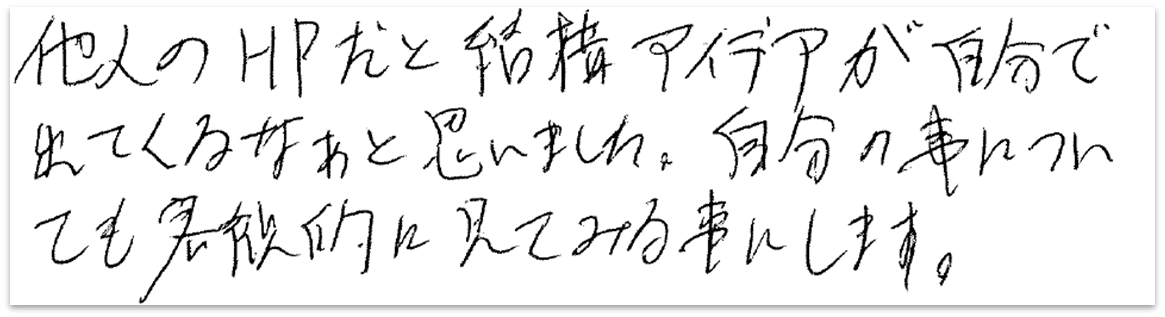 他人のHPだと結構アイデアが自分で
出てくるなぁと思いました。自分の事につい
ても客観的に見てみる事にします。